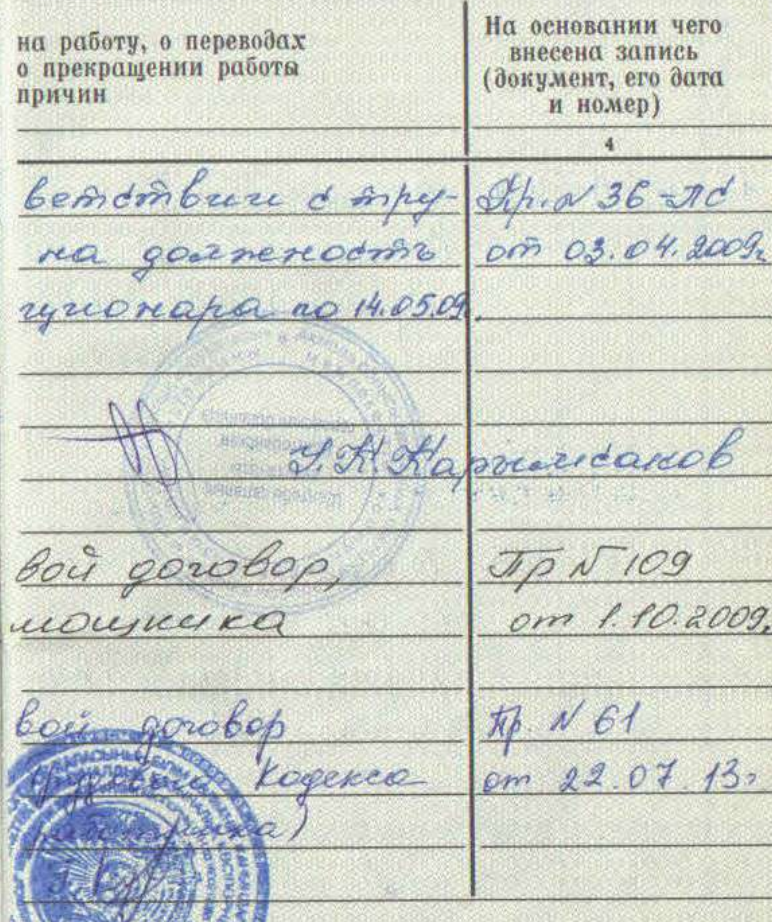 на работу, о переводах
о прекращении работы
причин
На основании чего
внесена запись
(документ, его дата
и номер)
4
ветствии с тру- Пр. N 36-ЛС
на должность от 03.04.2009г
ционара по 14.05.09.
К. Карымсаков
вой договор, Пр N 109
мощника от 1.10.2009.
вой договор Пр. N 61
Кодекса от 22.07.13г